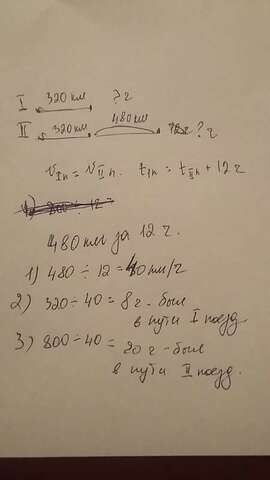 I 320 км ? г
480 км
II 320 км ? г
vIп = vIIп. tIп = tIIп + 12 г
480 км за 12 г.
1) 480 ÷ 12 = 40 км/г
2) 320 ÷ 40 = 8 г - был
в пути I поезд
3) 800 ÷ 40 = 20 г - был
в пути II поезд.